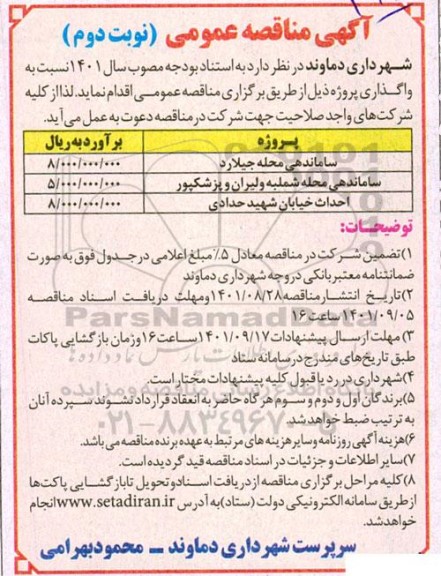 آگهی مناقصه عمومی (نوبت دوم)
شهرداری دماوند در نظر دارد به استناد بودجه مصوب سال ۱۴۰۱ نسبت به
واگذاری پروژه ذیل از طریق برگزاری مناقصه عمومی اقدام نماید. لذا از کلیه
شرکت‌های واجد صلاحیت جهت شرکت در مناقصه دعوت به عمل می‌آید.
پروژه برآورد به ریال
ساماندهی محله جیلارد ۸/۰۰۰/۰۰۰/۰۰۰
ساماندهی محله شملبه ولیران و پزشکپور ۵/۰۰۰/۰۰۰/۰۰۰
احداث خیابان شهید حدادی ۸/۰۰۰/۰۰۰/۰۰۰
توضیحات:
۱)تضمین شرکت در مناقصه معادل ۵٪ مبلغ اعلامی در جدول فوق به صورت
ضمانتنامه معتبر بانکی در وجه شهرداری دماوند
۲)تاریخ انتشار مناقصه ۱۴۰۱/۰۸/۲۸ ومهلت دریافت اسناد مناقصه
۱۴۰۱/۰۹/۰۵ ساعت ۱۶
۳) مهلت ارسال پیشنهادات ۱۴۰۱/۰۹/۱۷ ساعت ۱۶ و زمان بازگشایی پاکات
طبق تاریخ‌های مندرج در سامانه ستاد
۴)شهرداری در رد یا قبول کلیه پیشنهادات مختار است.
۵)برندگان اول و دوم و سوم هر گاه حاضر به انعقاد قرارداد نشوند سپرده آنان
به ترتیب ضبط خواهد شد
۶)هزینه آگهی روزنامه و سایر هزینه های مرتبط به عهده برنده مناقصه می باشد.
۷)سایر اطلاعات و جزئیات در اسناد مناقصه قید گردیده است.
۸)کلیه مراحل برگزاری مناقصه از دریافت اسناد و تحویل تا بازگشایی پاکت‌ها
از طریق سامانه الکترونیکی دولت (ستاد) به آدرس www.setadiran.ir انجام
خواهد شد.
سرپرست شهرداری دماوند – محمود بهرامی
ParsNamadData
۰۲۱-۸۸۳۴۹۶۷۰-۵